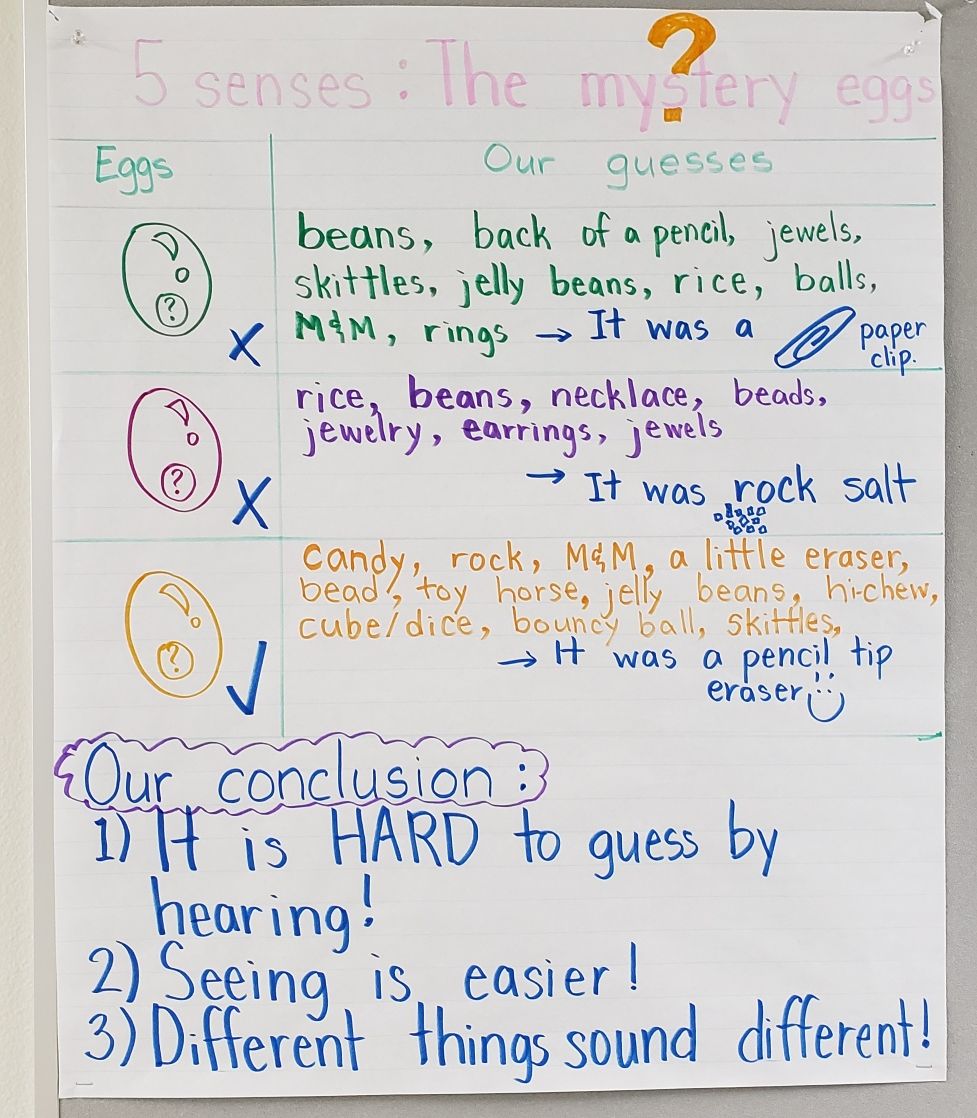 5 senses: The mystery eggs
?
Eggs
Our guesses
?
X
beans, back of a pencil, jewels,
skittles, jelly beans, rice, balls,
M&M, rings → It was a paper
clip.
?
X
rice, beans, necklace, beads,
jewelry, earrings, jewels
→ It was rock salt
?
✓
candy, rock, M&M, a little eraser,
bead, toy horse, jelly beans, hi-chew,
cube/dice, bouncy ball, skittles,
→ It was a pencil tip
eraser
Our conclusion:
1) It is HARD to guess by
hearing!
2) Seeing is easier!
3) Different things sound different!